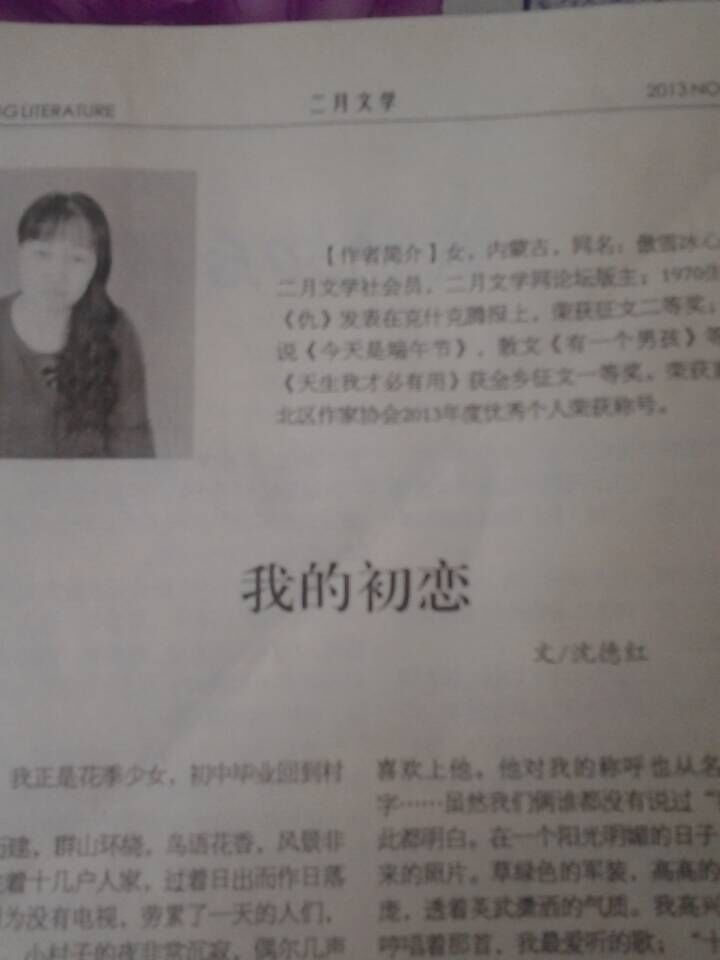 G LITERATURE
二月文学
2013 NO
【作者简介】女，内蒙古，网名：傲雪冰心
二月文学社会员，二月文学网论坛版主；1970生
《仇》发表在克什克腾报上，荣获征文二等奖；
说《今天是端午节》，散文《有一个男孩》等
《天生我才必有用》获金乡征文一等奖。荣获
北区作家协会2013年度优秀个人荣获称号。
我的初恋
文/沈德红
我正是花季少女，初中毕业回到村
建，群山环绕，鸟语花香，风景非
着十几户人家，过着日出而作日落
为没有电视，劳累了一天的人们，
小村子的夜非常沉寂，偶尔几声
喜欢上他。他对我的称呼也从名
字……虽然我们俩谁都没有说过“
此都明白。在一个阳光明媚的日子
来的照片。草绿色的军装，高高的
庞，透着英武潇洒的气质。我高兴
哼唱着那首，我最爱听的歌；“十